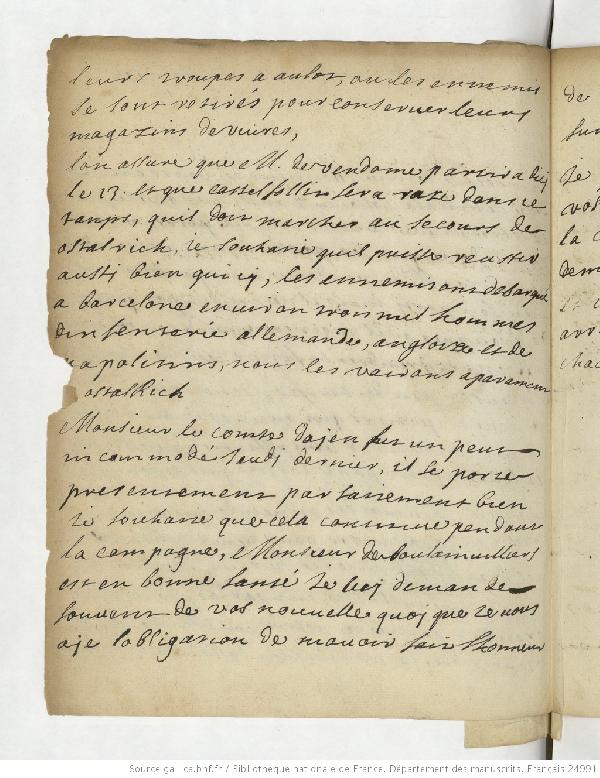 leurs troupes a aulot, ou les ennemis
se sont retirés pour conseruer leurs
magazins de viures,
lon assure que M. de vendome partira dicj
le 23. et que castelfollit sera raze dans ce
tamps, quil doit marcher au secours de
ostalrich, ie souhaite quil puisse reussir
austi bien qui cy, les ennemis ont debarque
a barcelone enuiron trois mil hommes
dinfenterie allemande, angloise et de
napolitins, nous les vairons aparement
ostalRich
Monsieur le comte dajen fut un peut
incommodé Jeudj dernier, il se porte
presentement parfaitement bien
ie souhaite que cela continue pendant
la campagne, Monsieur de boulainuilliers
est en bonne santé Je luj demande
souvent de vos nouuelle quoj que ie nous
aje lobligation de mauoir fait lhonneur
de
sur
Je
vos
la
dem
et
arr
chac
Source gallica.bnf.fr / Bibliothèque nationale de France. Département des manuscrits. Français 24991